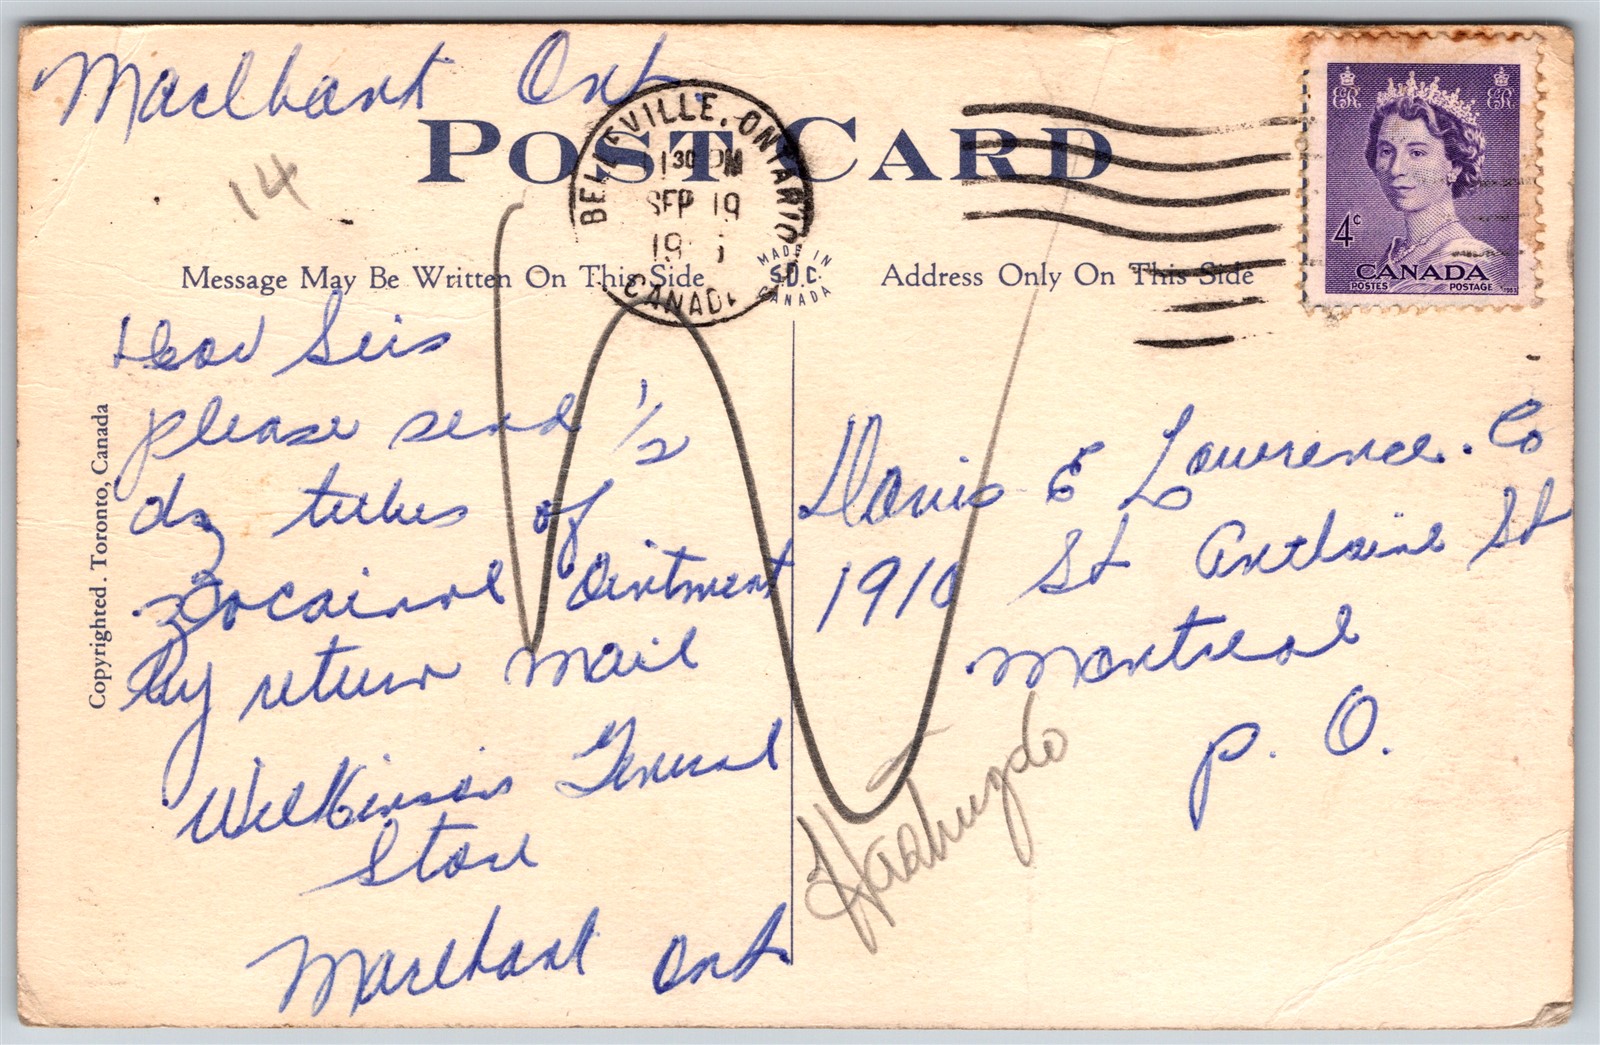 Maclhant Ont
14
POST CARD
BELLEVILLE, ONTARIO
1 30 PM
SEP 19
19
CANADA
MADE IN
S.D.C.
CANADA
ER ER
4c
CANADA
POSTES POSTAGE
Message May Be Written On This Side
Address Only On This Side
Copyrighted. Toronto, Canada
Dear Seis
please send 1/2
dz tubes of
Zocainol Ointment
by return mail
Wilkinson General
Store
Marlhant Ont
Davis E Lawrence. Co
1910 St Anthoine St
Montreal
P. Q.